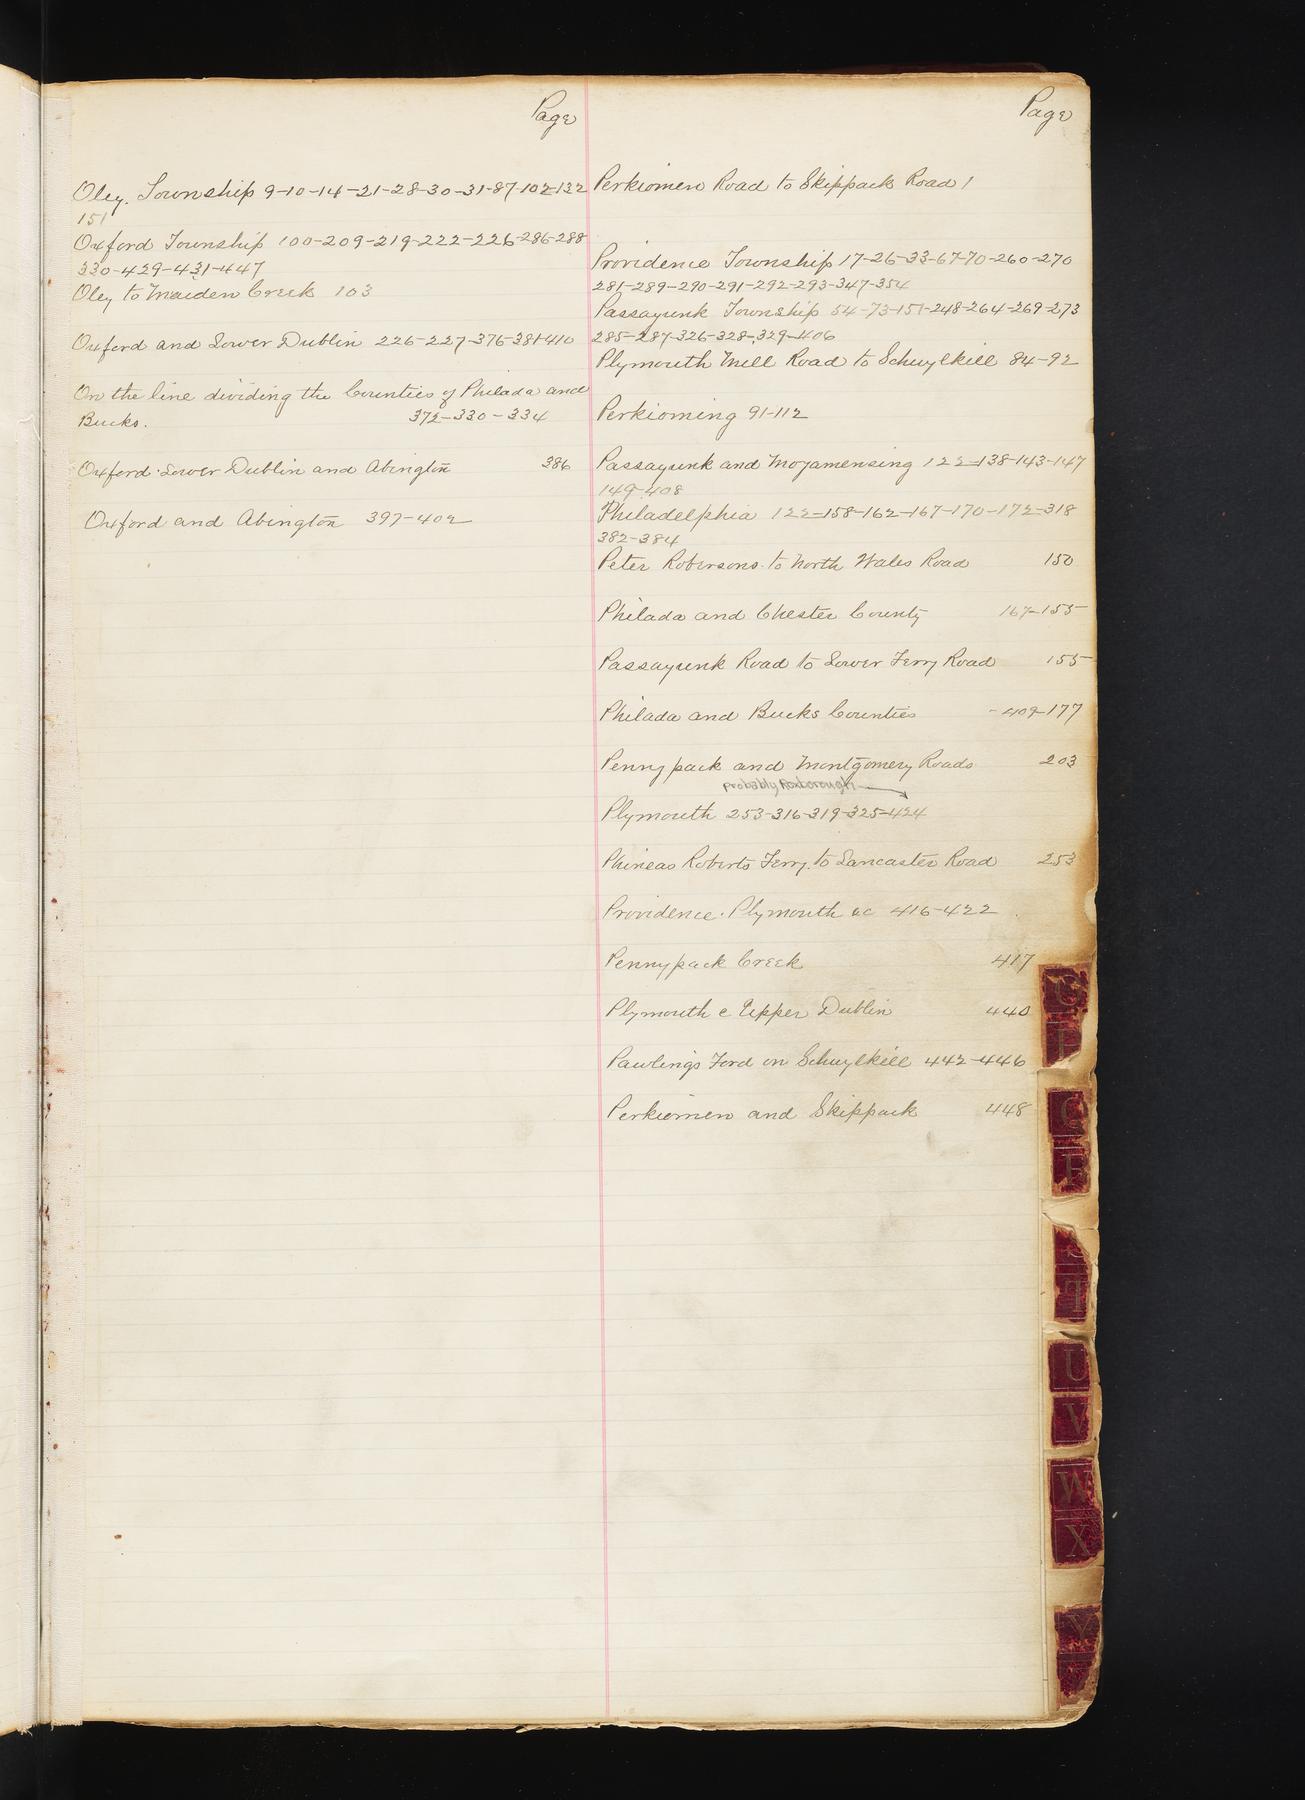 Page
Oley. Township 9-10-14-21-28-30-31-87-102-132
151
Oxford Township 100-209-219-222-226-286-288
330-429-431-447
Oley to Maiden Creek 103
Oxford and Lower Dublin 226-227-376-381-410
On the line dividing the Counties of Philada and
Bucks. 372-330-334
Oxford. Lower Dublin and Abington 386
Oxford and Abington 397-402
Page
Perkiomen Road to Skippack Road 1
Providence Township 17-26-33-67-70-260-270
281-289-290-291-292-293-347-354
Passayunk Township 54-73-151-248-264-269-273
285-287-326-328-329-406
Plymouth Mill Road to Schuylkill 84-92
Perkioming 91-112
Passayunk and Moyamensing 122-138-143-147
149-408
Philadelphia 122-158-162-167-170-172-318
382-384
Peter Robinsons to North Wales Road 150
Philada and Chester County 167-155
Passayunk Road to Lower Ferry Road 155
Philada and Bucks Counties - 409-177
Pennypack and Montgomery Roads 203
probably Roxborough
Plymouth 253-316-319-325-424
Phineas Roberts Ferry. to Lancaster Road 253
Providence. Plymouth &c 416-422
Pennypack Creek 417
Plymouth & Upper Dublin 440
Pawling's Ford on Schuylkill 442-446
Perkiomen and Skippack 448
S
T
U
V
W
X
Y